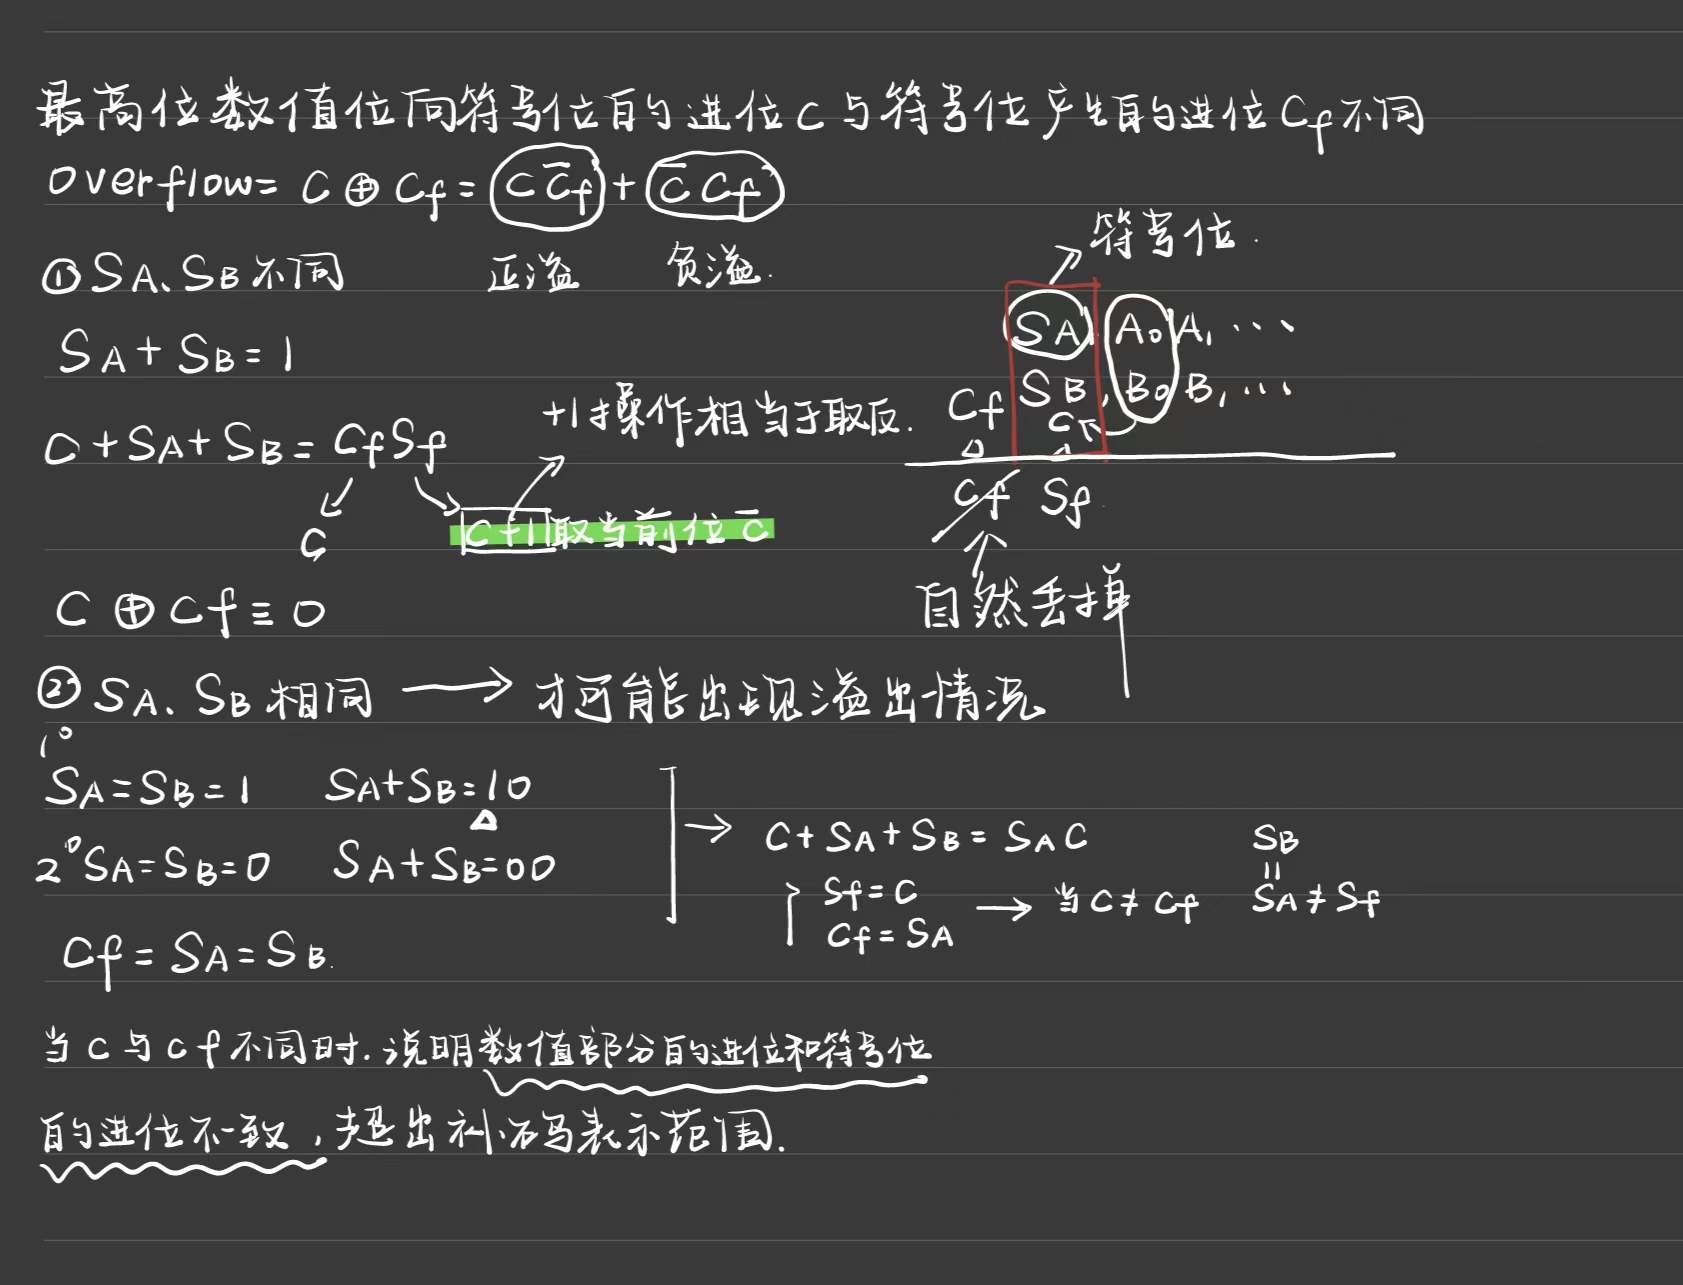 最高位数值位向符号位的进位C与符号位产生的进位Cf不同
overflow= C ⊕ Cf = C C̅f + C̅ Cf
正溢 负溢.
① SA、SB不同
SA + SB = 1
C + SA + SB = Cf Sf
C
C+1 取当前位 C̅
+1操作相当于取反.
C ⊕ Cf ≡ 0
符号位.
SA, A0 A1 ...
SB, B0 B1 ...
Cf C
Cf Sf
自然丢掉
② SA、SB相同 → 才可能出现溢出情况
1° SA=SB=1 SA+SB=10
2° SA=SB=0 SA+SB=00
Cf = SA = SB.
→ C + SA + SB = SA C
Sf = C
Cf = SA
→ 当 C ≠ Cf SA ≠ Sf
SB
=
当C与Cf不同时.说明数值部分的进位和符号位
的进位不一致,超出补码表示范围.